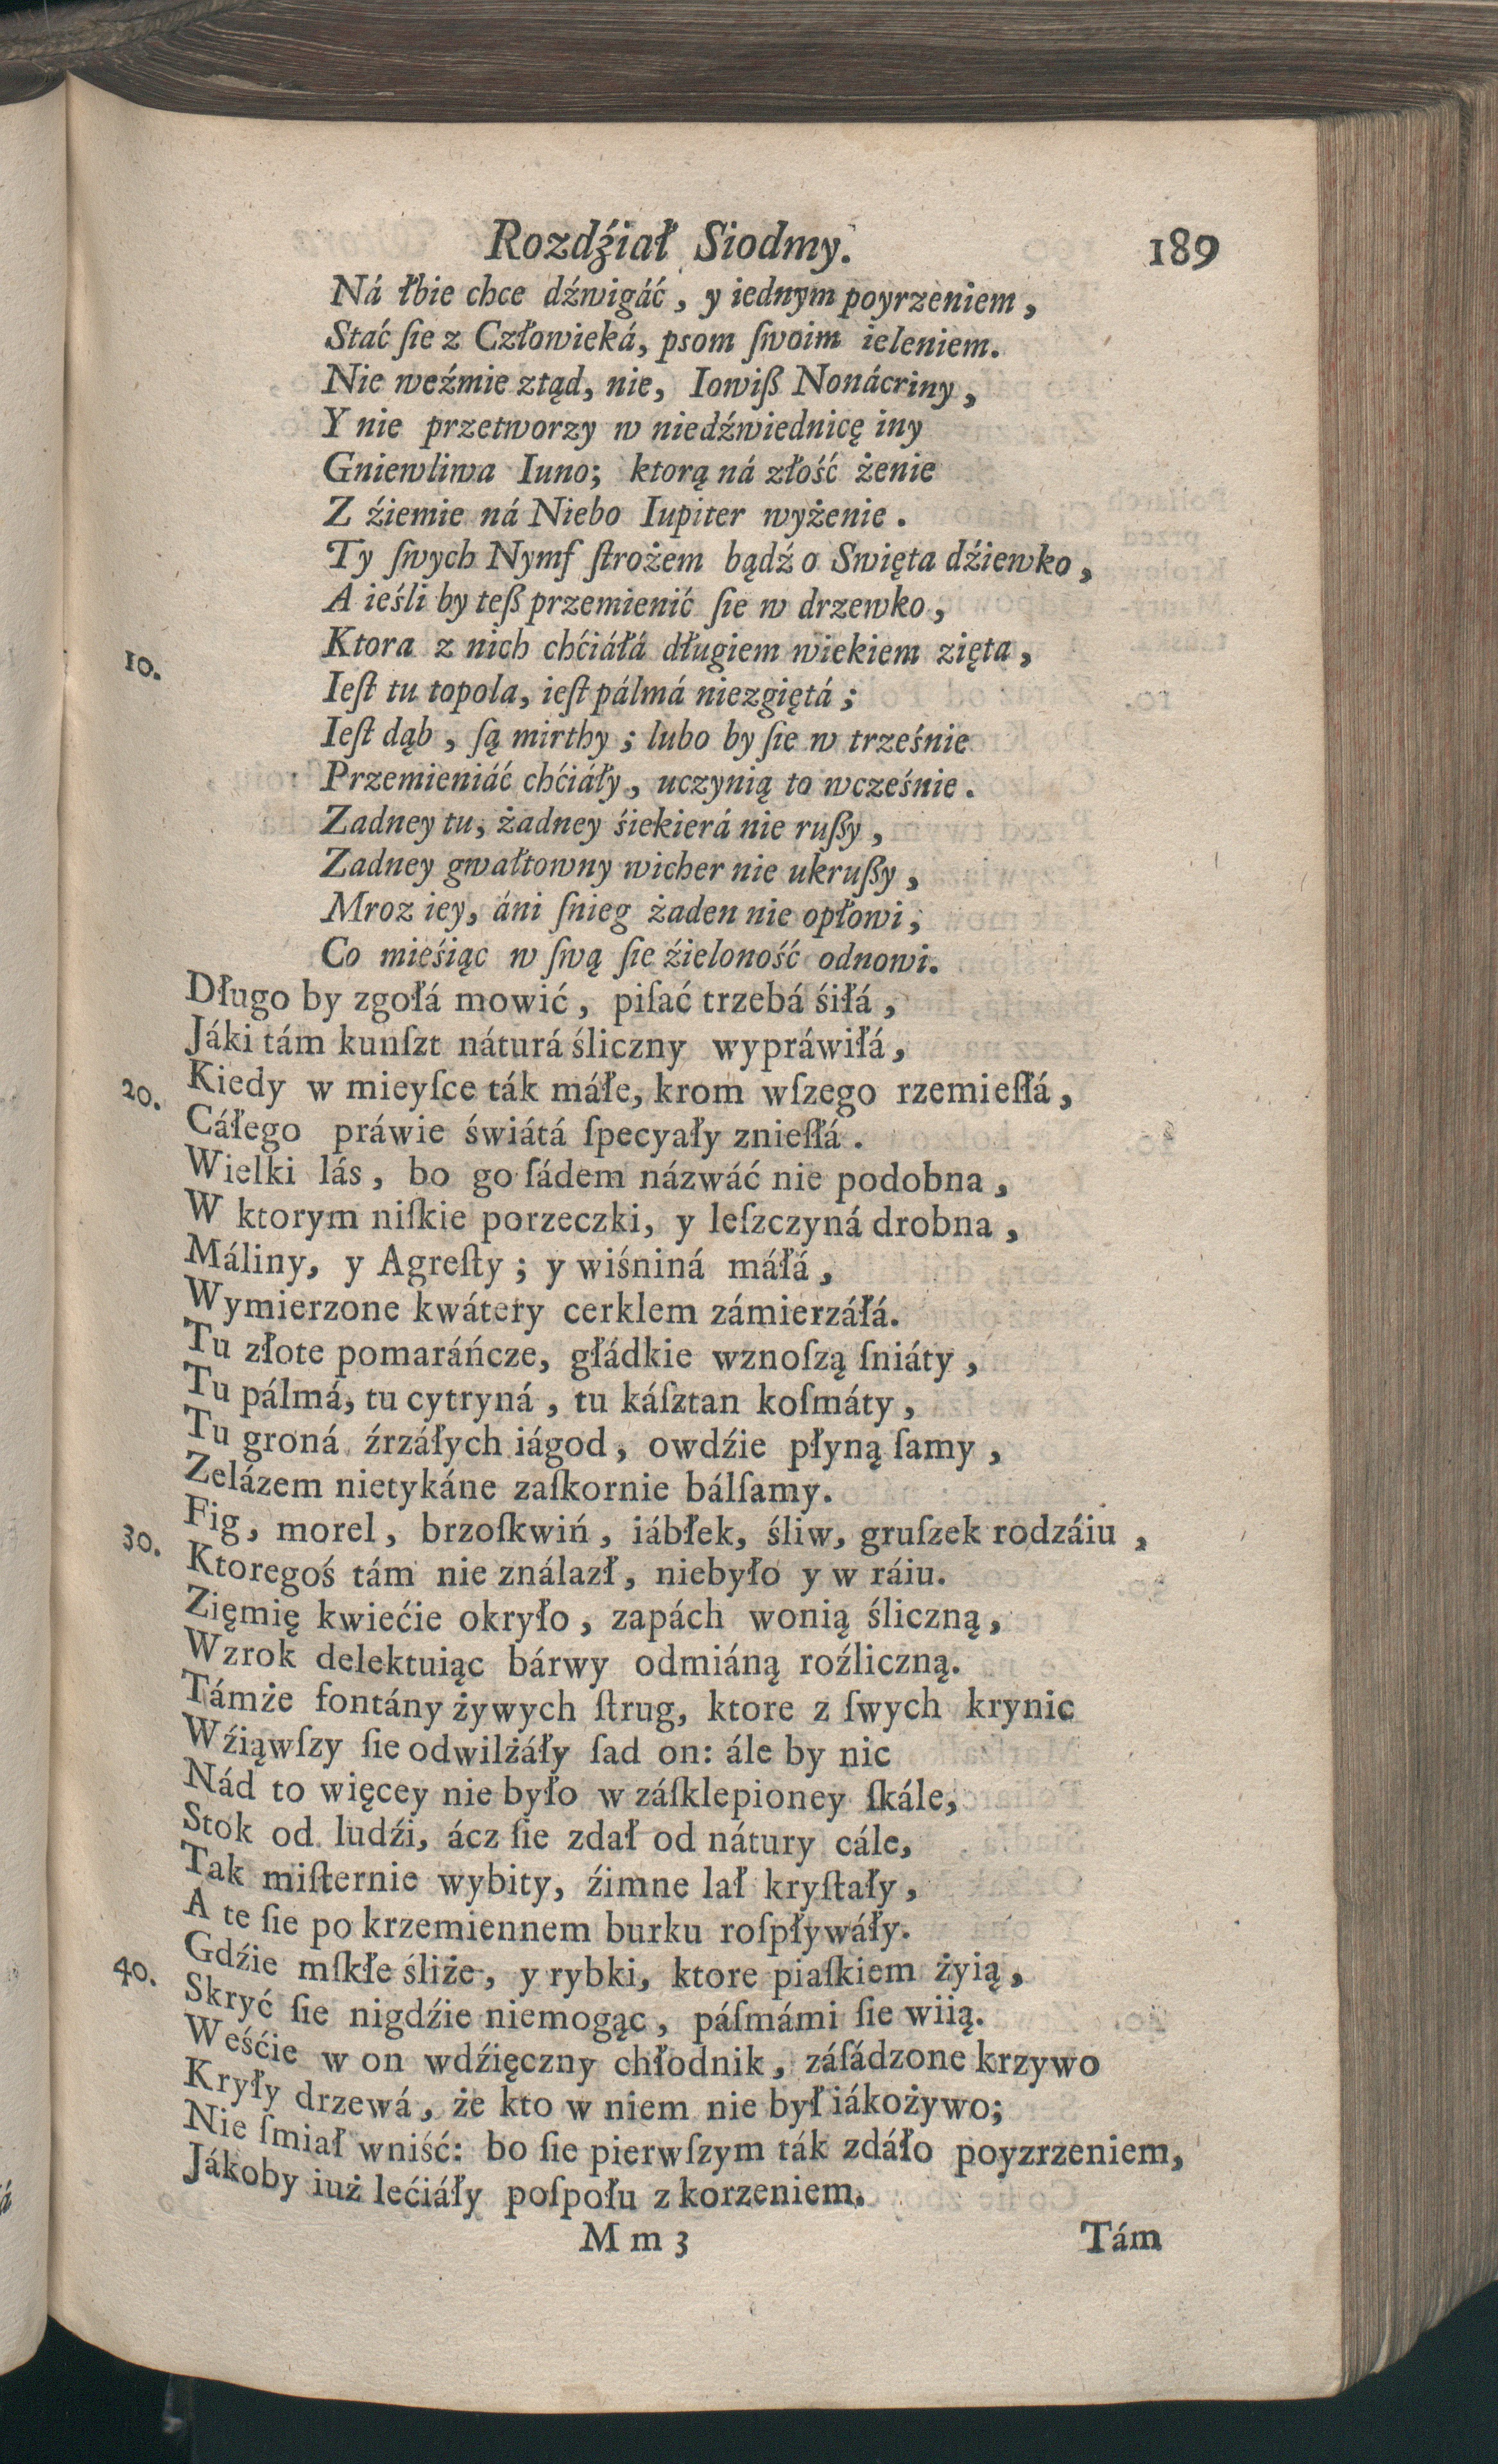 Rozdźiał Siodmy. 189
Ná łbie chce dźwigáć, y iednym poyrzeniem,
Stać ſie z Człowieká, psom ſwoim ieleniem.
Nie weźmie ztąd, nie, Iowiß Nonácriny,
Y nie przetworzy w niedźwiednicę iny
Gniewliwa Iuno; ktorą ná złość żenie
Z źiemie ná Niebo Iupiter wyżenie.
Ty ſwych Nymf ſtrożem bądź o Swięta dźiewko,
A ieśli by teß przemienić ſie w drzewko,
10. Ktora z nich chćiáłá długiem wiekiem zięta,
Ieſt tu topola, ieſt pálmá niezgiętá;
Ieſt dąb, ſą mirthy; lubo by ſie w trześnie
Przemieniáć chćiáły, uczynią to wcześnie.
Zadney tu, żadney śiekierá nie rußy,
Zadney gwałtowny wicher nie ukrußy,
Mroz iey, áni ſnieg żaden nie opłowi,
Co mieśiąc w ſwą ſie źieloność odnowi.
Długo by zgołá mowić, piſać trzebá śiłá,
Jáki tám kunſzt náturá śliczny wypráwiłá,
20. Kiedy w mieyſce ták máłe, krom wſzego rzemieſłá,
Cáłego práwie świátá ſpecyały znieſłá.
Wielki lás, bo go ſádem názwáć nie podobna,
W ktorym niſkie porzeczki, y leſzczyná drobna,
Máliny, y Agreſty; y wiśniná máłá,
Wymierzone kwátery cerklem zámierzáłá.
Tu złote pomaráńcze, głádkie wznoſzą ſniáty,
Tu pálmá, tu cytryná, tu káſztan koſmáty,
Tu groná źrzáłych iágod, owdźie płyną ſamy,
Zelázem nietykáne zaſkornie bálſamy.
30. Fig, morel, brzoſkwiń, iábłek, śliw, gruſzek rodzáiu,
Ktoregoś tám nie ználazł, niebyło y w ráiu.
Zięmię kwiećie okryło, zapách wonią śliczną,
Wzrok delektuiąc bárwy odmiáną roźliczną.
Támże fontány żywych ſtrug, ktore z ſwych krynic
Wźiąwſzy ſie odwilżáły ſad on: ále by nic
Nád to więcey nie było w záſklepioney ſkále,
Stok od ludźi, ácz ſie zdał od nátury cále,
Tak miſternie wybity, źimne lał kryſtały,
A te ſie po krzemiennem burku roſpływáły.
40. Gdźie mſkłe śliże, y rybki, ktore piaſkiem żyią,
Skryć ſie nigdźie niemogąc, páſmámi ſie wiią.
Weśćie w on wdźięczny chłodnik, záſádzone krzywo
Kryły drzewá, że kto w niem nie był iákożywo;
Nie ſmiał wniść: bo ſie pierwſzym ták zdáło poyzrzeniem,
Jákoby iuż lećiáły poſpołu z korzeniem.
M m 3 Tám